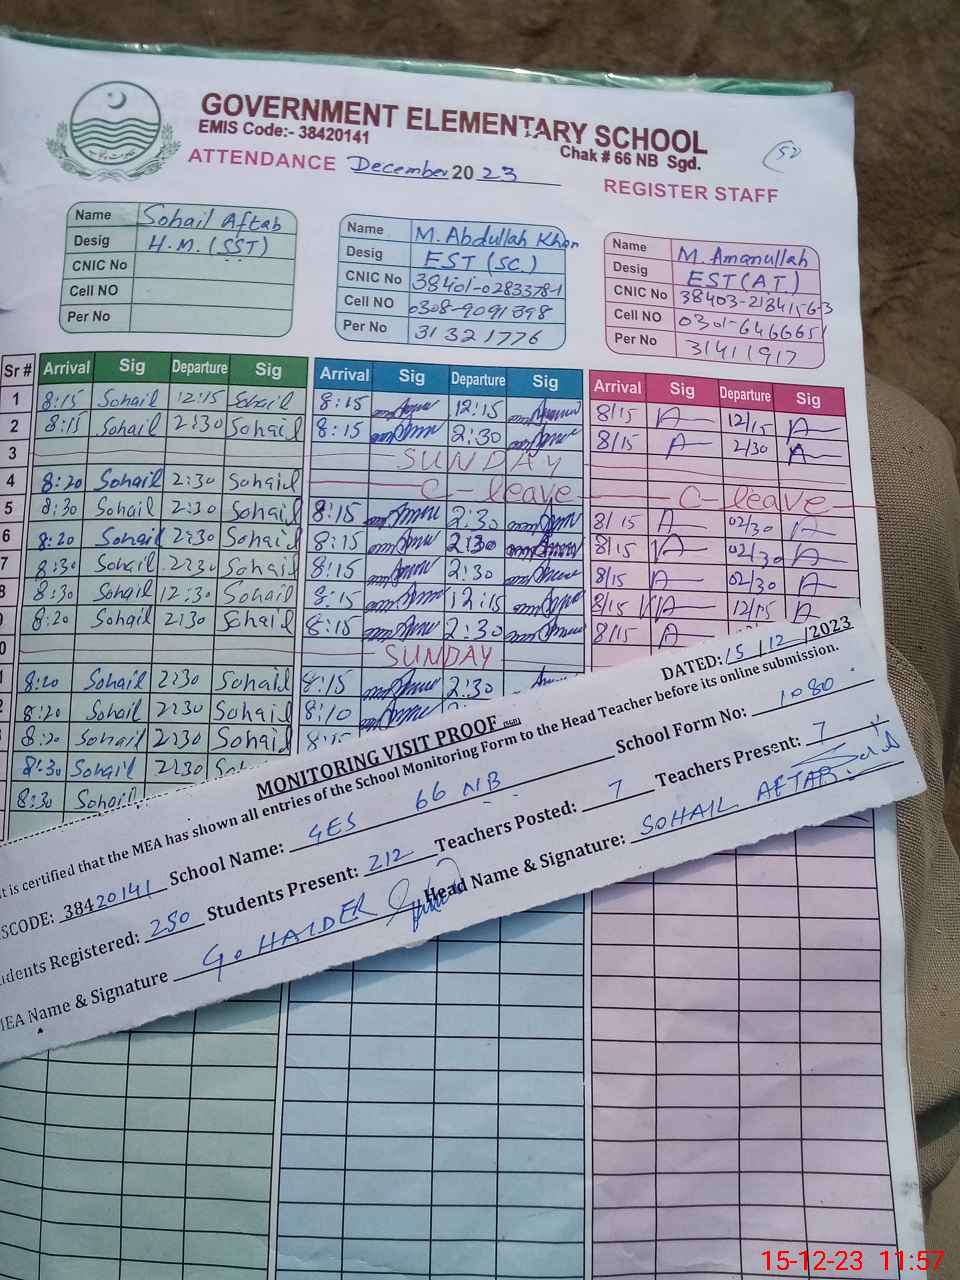 GOVERNMENT ELEMENTARY SCHOOL
EMIS Code:- 38420141
Chak # 66 NB Sgd.
ATTENDANCE December 2023
REGISTER STAFF
Name Sohail Aftab
Desig H.M. (SST)
CNIC No
Cell NO
Per No
Name M. Abdullah Khan
Desig EST (SC.)
CNIC No 38401-0283378-1
Cell NO 0308-9091898
Per No 31321776
Name M. Amanullah
Desig EST (A.T.)
CNIC No
Cell NO 0301-6466651
Per No 31411917
Sr # Arrival Sig Departure Sig Arrival Sig Departure Sig Arrival Sig Departure Sig
1 8:15 Sohail 12:15 Sohail 8:15 12:15 8/15 A 12/15 A
2 8:15 Sohail 2:30 Sohail 8:15 2:30 8/15 A 2/30 A
3 SUNDAY
4 8:20 Sohail 2:30 Sohail C-leave C-leave
5 8:30 Sohail 2:30 Sohail 8:15 2:30 8/15 A 02/30 A
6 8:20 Sohail 2:30 Sohail 8:15 2:30 8/15 A 02/30 A
7 8:30 Sohail 2:30 Sohail 8:15 2:30 8/15 A 02/30 A
8 8:30 Sohail 12:30 Sohail 8:15 12:15 8/15 A 12/15 A
8:20 Sohail 2:30 Sohail 8:15 2:30 8/15 A
0 SUNDAY
8:20 Sohail 2:30 Sohail 8:15 2:30
8:20 Sohail 2:30 Sohail 8:10
8:20 Sohail 2:30 Sohail
8:30 Sohail 2:30
8:30 Sohail
MONITORING VISIT PROOF
DATED: 15/12/2023
It is certified that the MEA has shown all entries of the School Monitoring Form to the Head Teacher before its online submission.
SCODE: 38420141 School Name: GES 66 NB School Form No: 1080
dents Registered: 250 Students Present: 212 Teachers Posted: 7 Teachers Present: 7
MEA Name & Signature G. HAIDER Head Name & Signature: SOHAIL AFTAB
15-12-23 11:57